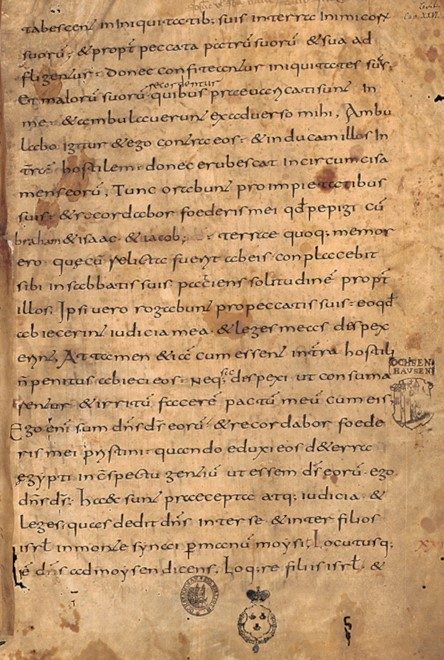 Levit.
Cap. XXVI
tabescent in iniquitatib; suis in terra inimicorū
suorū, & propt̄ peccata patrū suorū & sua ad
fligentur: donec confiteantur iniquitates suas
recordentur
Et malorū suorū quibus praeuaricati sunt In
me. & ambulauerunt ex aduerso mihi, Ambu
labo Igitur & ego contra eos. & inducam illos In
trā hostilem: donec erubescat incircumcisa
mens eorū, Tunc orabunt pro impietatibus
suis: & recordabor foederis mei qđ pepigi cū
braham & isaac & iacob; terrae quoq; memor
ero que cū relicta fuerit ab eis conplacebit
sibi in sabbatis suis patiens solitudinē propt̄
illos; Ipsi uero rogabunt pro peccatis suis. eo qđ
abiecerint iudicia mea & leges meas dispex
erunt, Attamen & iā cum essent in tra hostili
n̄ penitus abieci eos. Neq; sic dispexi ut consuma
rentur & irritū facere pactū meū cum eis;
Ego enī sum dns ds eorū & recordabor foede
ris mei pristini: quando eduxi eos de terra
egypti in cspectu gentiū ut essem ds eorū. ego
dns ds; Haec sunt praecepta atq; iudicia &
leges; quas dedit dns inter se & inter filios
isrl in monte synai p manū moysi; Locutusq;
ē dns ad moysen dicens. Loq;re filiis isrl. &
OCHSEN
HAUSEN